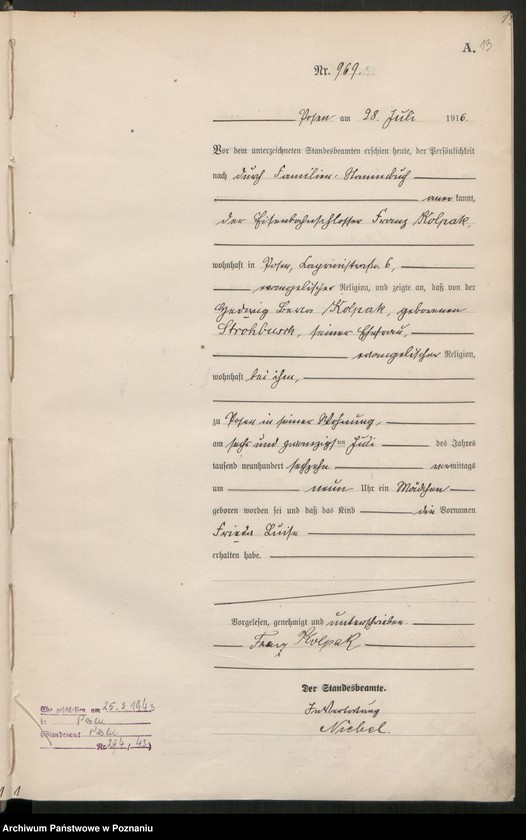 A. 13
Nr. 969.
Posen am 28. Juli 1916.
Vor dem unterzeichneten Standesbeamten erschien heute, der Persönlichkeit
nach durch Familien-Stammbuch
anerkannt,
der Eisenbahnschlosser Franz Kolpak,
wohnhaft in Posen, 6,
evangelischer Religion, und zeigte an, daß von der
Hedwig Kolpak, geborenen
Strohbusch, seiner Ehefrau,
evangelischer Religion,
wohnhaft bei ihm,
zu Posen in seiner Wohnung
am sechs und zwanzigsten Juli des Jahres
tausend neunhundert sechzehn vormittags
um neun Uhr ein Mädchen
geboren worden sei und daß das Kind die Vornamen
Frieda Luise
erhalten habe.
Vorgelesen, genehmigt und unterschrieben
Franz Kolpak
Der Standesbeamte.
In Vertretung
Niebel.
Ehe geschlossen am 25.3.1943
in Posen
(Standesamt Posen
Nr. 294/43)
Archiwum Państwowe w Poznaniu